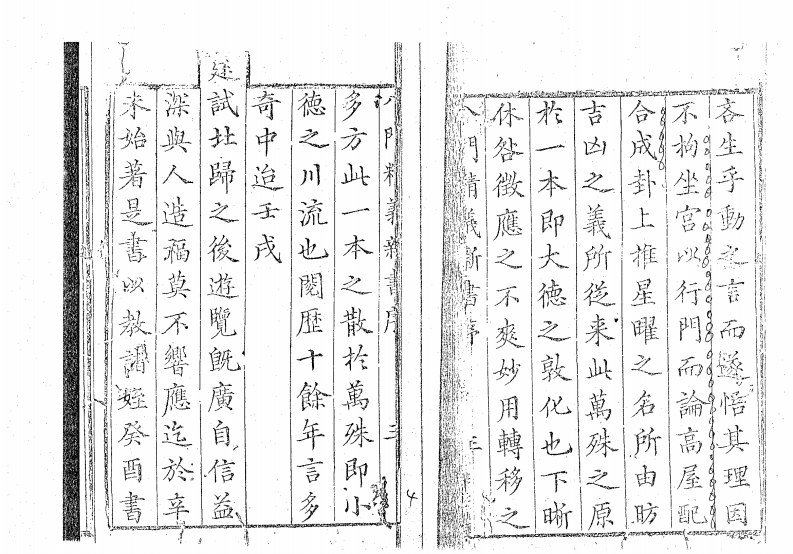 吝生乎動之言而遂悟其理因
不拘坐宮以行門而論高屋配
合成卦上推星曜之名所由昉
吉凶之義所從来此萬殊之原
於一本即大德之敦化也下晰
休咎徵應之不爽妙用轉移之
八門精義新書序 三
4
八門精義新書序 三
多方此一本之散於萬殊即小
德之川流也閱歷十餘年言多
奇中迨壬戌
廷試北歸之後遊覽既廣自信益
深與人造福莫不響應迄於辛
未始著是書以教諸姪癸酉書